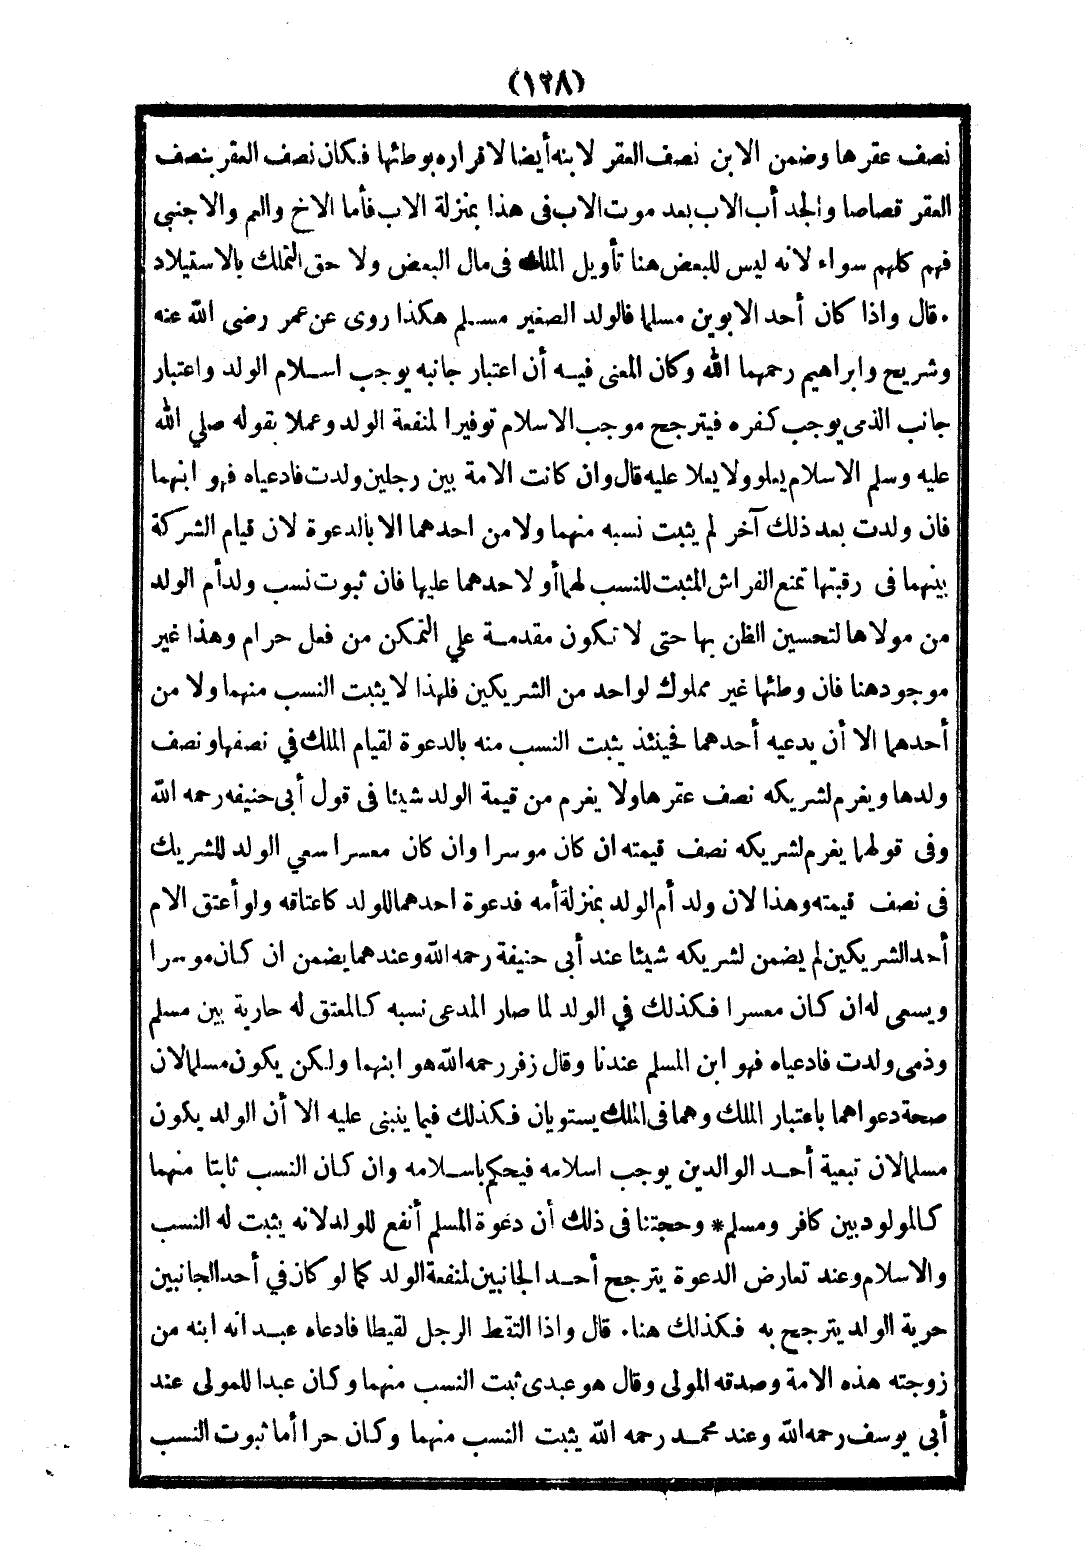 (١٢٨)
نصف عقرها وضمن الابن نصف العقر لابنه أيضا لاقراره بوطئها فكان نصف العقر بنصف
العقر قصاصا والجد أب الاب بعد موت الاب فى هذا بمنزلة الاب فأما الاخ والعم والاجنبي
فهم كلهم سواء لانه ليس للبعض هنا تأويل الملك فى مال البعض ولا حق التملك بالاستيلاد
• قال واذا كان أحد الابوين مسلما فالولد الصغير مسلم هكذا روى عن عمر رضى الله عنه
وشريح وابراهيم رحمهما الله وكان المعنى فيه أن اعتبار جانبه يوجب اسلام الولد واعتبار
جانب الذمى يوجب كفره فيترجح موجب الاسلام توفيرا لمنفعة الولد وعملا بقوله صلي الله
عليه وسلم الاسلام يعلو ولا يعلا عليه قال وان كانت الامة بين رجلين ولدت فادعياه فهو ابنهما
فان ولدت بعد ذلك آخر لم يثبت نسبه منهما ولا من احدهما الا بالدعوة لان قيام الشركة
بينهما فى رقبتها تمنع الفراش المثبت للنسب لهما أو لاحدهما عليها فان ثبوت نسب ولد أم الولد
من مولاها لتحسين الظن بها حتى لا تكون مقدمة علي التمكن من فعل حرام وهذا غير
موجود هنا فان وطئها غير مملوك لواحد من الشريكين فلهذا لا يثبت النسب منهما ولا من
أحدهما الا أن يدعيه أحدهما فحينئذ يثبت النسب منه بالدعوة لقيام الملك في نصفها ونصف
ولدها ويغرم لشريكه نصف عقرها ولا يغرم من قيمة الولد شيئا فى قول أبى حنيفه رحمه الله
وفى قولهما يغرم لشريكه نصف قيمته ان كان موسرا وان كان معسرا سعي الولد للشريك
فى نصف قيمته وهذا لان ولد أم الولد بمنزلة أمه فدعوة احدهما للولد كاعتاقه ولو أعتق الام
أحد الشريكين لم يضمن لشريكه شيئا عند أبى حنيفة رحمه الله وعندهما يضمن ان كان موسرا
ويسعى له ان كان معسرا فكذلك في الولد لما صار المدعى نسبه كالمعتق له جارية بين مسلم
وذمى ولدت فادعياه فهو ابن المسلم عندنا وقال زفر رحمه الله هو ابنهما ولكن يكون مسلما لان
صحة دعواهما باعتبار الملك وهما فى الملك يستويان فكذلك فيما ينبنى عليه الا أن الولد يكون
مسلما لان تبعية أحد الوالدين يوجب اسلامه فيحكم باسلامه وان كان النسب ثابتا منهما
كالمولود بين كافر ومسلم * وحجتنا فى ذلك أن دعوة المسلم أنفع للولد لانه يثبت له النسب
والاسلام وعند تعارض الدعوة يترجح أحد الجانبين لمنفعة الولد كما لو كان في أحد الجانبين
حرية الولد يترجح به فكذلك هنا • قال واذا التقط الرجل لقيطا فادعاه عبد انه ابنه من
زوجته هذه الامة وصدقه المولى وقال هو عبدى ثبت النسب منهما وكان عبدا للمولى عند
أبى يوسف رحمه الله وعند محمد رحمه الله يثبت النسب منهما وكان حرا أما ثبوت النسب